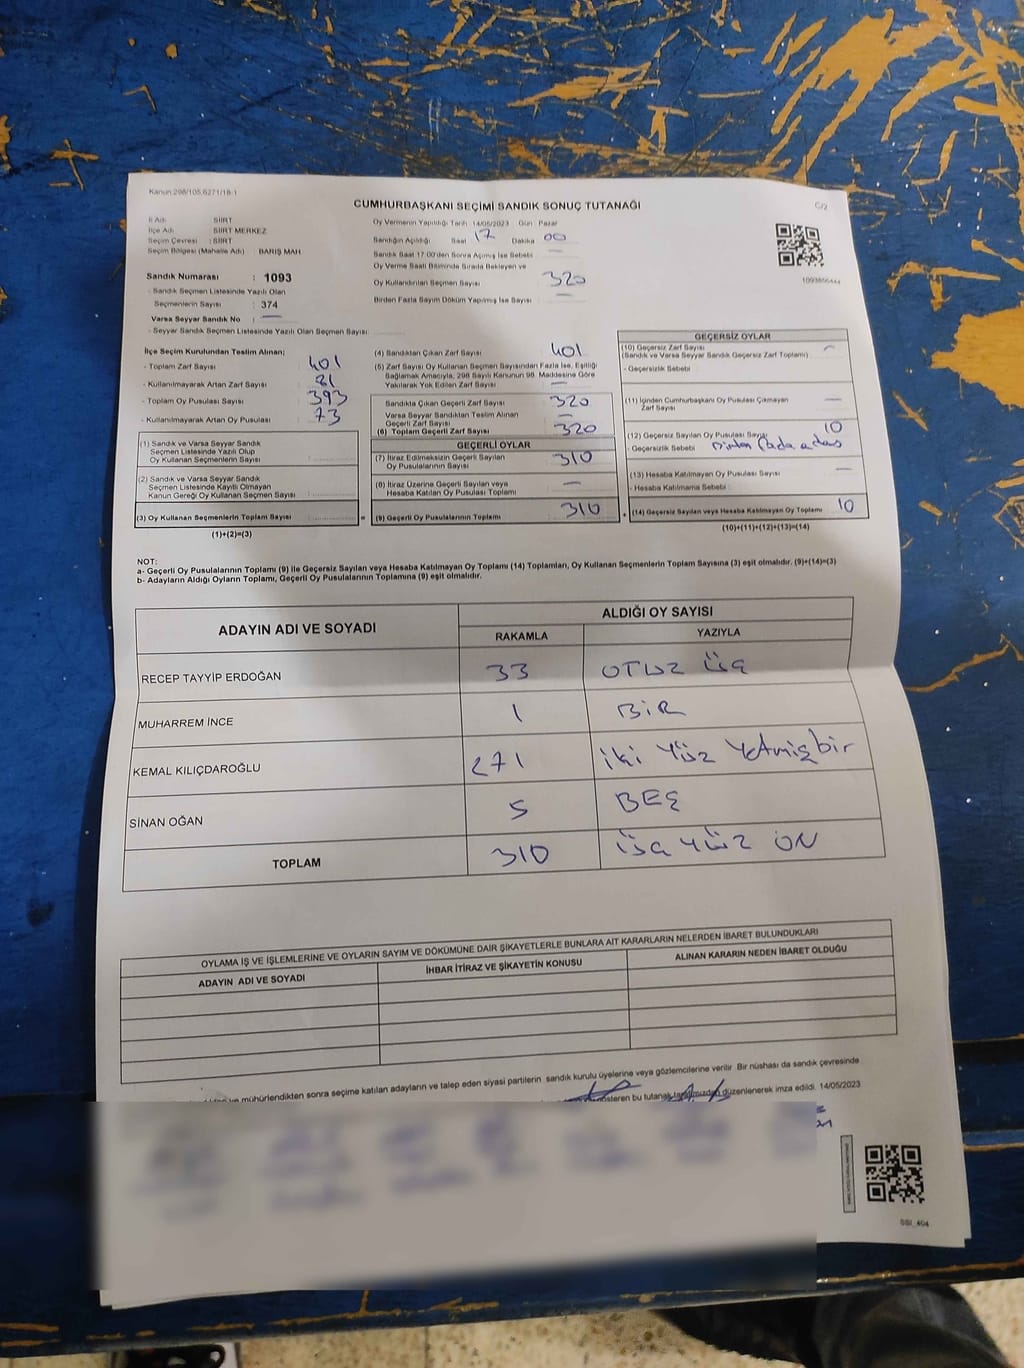 Kanun 298/105,6271/18-1
CUMHURBAŞKANI SEÇİMİ SANDIK SONUÇ TUTANAĞI
C/2
İl Adı : SİİRT
İlçe Adı : SİİRT MERKEZ
Seçim Çevresi : SİİRT
Seçim Bölgesi (Mahalle Adı) : BARIŞ MAH
Sandık Numarası : 1093
- Sandık Seçmen Listesinde Yazılı Olan
Seçmenlerin Sayısı : 374
Varsa Seyyar Sandık No : —
- Seyyar Sandık Seçmen Listesinde Yazılı Olan Seçmen Sayısı:
Oy Vermenin Yapıldığı Tarih : 14/05/2023 Gün : Pazar
Sandığın Açıldığı Saat 17 Dakika 00
Sandık Saat 17.00'den Sonra Açılmış İse Sebebi : —
Oy Verme Saati Bitiminde Sırada Bekleyen ve
Oy Kullandırılan Seçmen Sayısı : 320
Birden Fazla Sayım Döküm Yapılmış İse Sayısı : —
İlçe Seçim Kurulundan Teslim Alınan;
- Toplam Zarf Sayısı : 401
- Kullanılmayarak Artan Zarf Sayısı : 81
- Toplam Oy Pusulası Sayısı : 393
- Kullanılmayarak Artan Oy Pusulası : 73
(1) Sandık ve Varsa Seyyar Sandık
Seçmen Listesinde Yazılı Olup
Oy Kullanan Seçmenlerin Sayısı :
(2) Sandık ve Varsa Seyyar Sandık
Seçmen Listesinde Kayıtlı Olmayan
Kanun Gereği Oy Kullanan Seçmen Sayısı :
(3) Oy Kullanan Seçmenlerin Toplam Sayısı :
(1)+(2)=(3)
(4) Sandıktan Çıkan Zarf Sayısı : 401
(5) Zarf Sayısı Oy Kullanan Seçmen Sayısından Fazla İse, Eşitliği
Sağlamak Amacıyla, 298 Sayılı Kanunun 98. Maddesine Göre
Yakılarak Yok Edilen Zarf Sayısı : —
Sandıkta Çıkan Geçerli Zarf Sayısı : 320
Varsa Seyyar Sandıktan Teslim Alınan
Geçerli Zarf Sayısı : —
(6) Toplam Geçerli Zarf Sayısı : 320
GEÇERLİ OYLAR
(7) İtiraz Edilmeksizin Geçerli Sayılan
Oy Pusulalarının Sayısı : 310
(8) İtiraz Üzerine Geçerli Sayılan veya
Hesaba Katılan Oy Pusulası Toplamı : —
(9) Geçerli Oy Pusulalarının Toplamı : 310
GEÇERSİZ OYLAR
(10) Geçersiz Zarf Sayısı : —
(Sandık ve Varsa Seyyar Sandık Geçersiz Zarf Toplamı)
- Geçersizlik Sebebi
(11) İçinden Cumhurbaşkanı Oy Pusulası Çıkmayan
Zarf Sayısı : —
(12) Geçersiz Sayılan Oy Pusulası Sayısı : 10
- Geçersizlik Sebebi
(13) Hesaba Katılmayan Oy Pusulası Sayısı : —
- Hesaba Katılmama Sebebi :
(14) Geçersiz Sayılan veya Hesaba Katılmayan Oy Toplamı : 10
(10)+(11)+(12)+(13)=(14)
NOT:
a- Geçerli Oy Pusulalarının Toplamı (9) ile Geçersiz Sayılan veya Hesaba Katılmayan Oy Toplamı (14) Toplamları, Oy Kullanan Seçmenlerin Toplam Sayısına (3) eşit olmalıdır. (9)+(14)=(3)
b- Adayların Aldığı Oyların Toplamı, Geçerli Oy Pusulalarının Toplamına (9) eşit olmalıdır.
ADAYIN ADI VE SOYADI
ALDIĞI OY SAYISI
RAKAMLA YAZIYLA
RECEP TAYYİP ERDOĞAN 33 OTUZ ÜÇ
MUHARREM İNCE 1 BİR
KEMAL KILIÇDAROĞLU 271 iki Yüz Yetmişbir
SİNAN OĞAN 5 BEŞ
TOPLAM 310 üç yüz ON
OYLAMA İŞ VE İŞLEMLERİNE VE OYLARIN SAYIM VE DÖKÜMÜNE DAİR ŞİKAYETLERLE BUNLARA AİT KARARLARIN NELERDEN İBARET BULUNDUKLARI
ADAYIN ADI VE SOYADI İHBAR İTİRAZ VE ŞİKAYETİN KONUSU ALINAN KARARIN NEDEN İBARET OLDUĞU
mühürlendikten sonra seçime katılan adayların ve talep eden siyasi partilerin sandık kurulu üyelerine veya gözlemcilerine verilir. Bir nüshası da sandık çevresinde
gösteren bu tutanak tarafımızdan düzenlenerek imza edildi. 14/05/2023
SSI_404